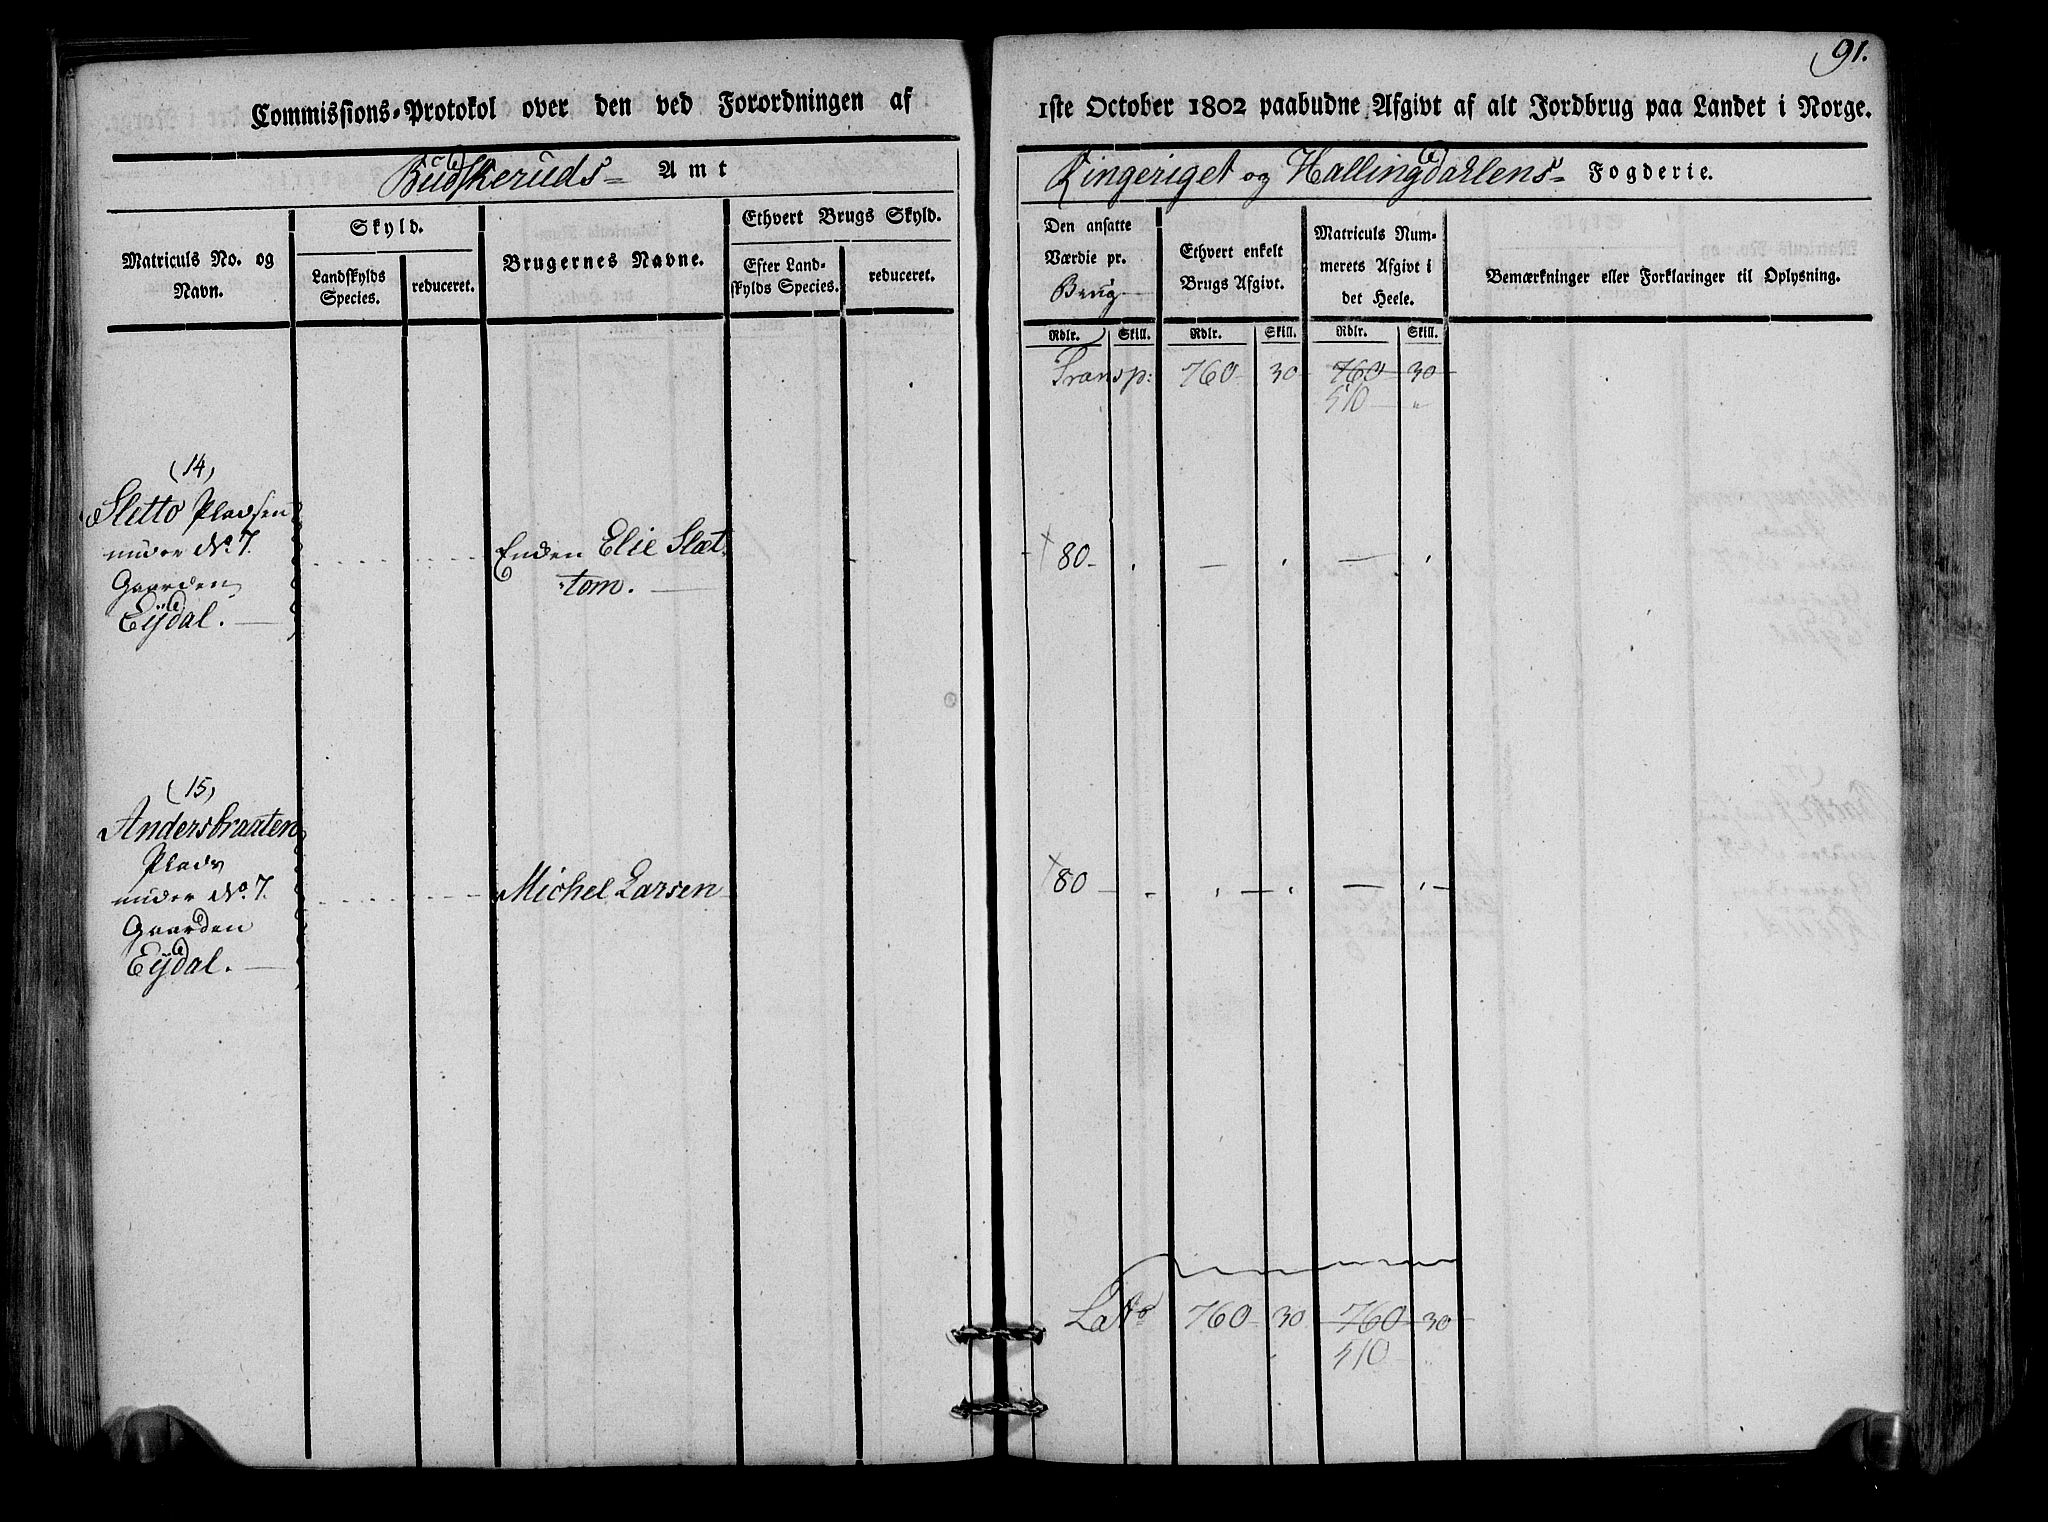 Commissions-Protokol over den ved Forordningen af
Budskeruds- Amt
Matriculs No. og Navn.
Skyld.
Landskylds Species.
reduceret.
Brugernes Navne.
Ethvert Brugs Skyld.
Efter Landskylds Species.
reduceret.
(14)
Sletto Pladsen
under No. 7.
Gaarden
Eÿdal.
Enken Elie Slæt-
tom.
(15)
Andersbraaten
Plads
under No. 7.
Gaarden
Eÿdal.
Michel Larsen
91.
1ste October 1802 paabudne Afgivt af alt Jordbrug paa Landet i Norge.
Ringeriget og Hallingdahlens- Fogderie.
Den ansatte Værdie pr. Brug
Ethvert enkelt Brugs Afgivt.
Matriculs Nummerets Afgivt i det Heele.
Bemærkninger eller Forklaringer til Oplysning.
Rdlr. Skill. Rdlr. Skill. Rdlr. Skill.
Transp: 760 30 760 30
510 "
80
80
Lat 760 30 760 30
510